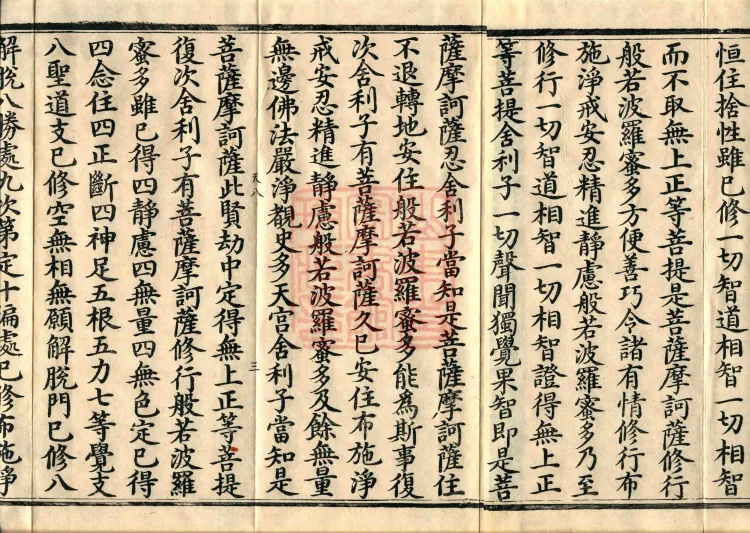 恒住捨性雖已修一切智道相智一切相智
而不取無上正等菩提是菩薩摩訶薩修行
般若波羅蜜多方便善巧令諸有情修行布
施淨戒安忍精進靜慮般若波羅蜜多乃至
修行一切智道相智一切相智證得無上正
等菩提舍利子一切聲聞獨覺果智即是菩
薩摩訶薩忍舍利子當知是菩薩摩訶薩住
不退轉地安住般若波羅蜜多能為斯事復
次舍利子有菩薩摩訶薩久已安住布施淨
戒安忍精進靜慮般若波羅蜜多及餘無量
無邊佛法嚴淨覩史多天宮舍利子當知是
天八
三
菩薩摩訶薩此賢劫中定得無上正等菩提
復次舍利子有菩薩摩訶薩修行般若波羅
蜜多雖已得四靜慮四無量四無色定已得
四念住四正斷四神足五根五力七等覺支
八聖道支已修空無相無願解脫門已修八
解脫八勝處九次第定十遍處已修布施淨